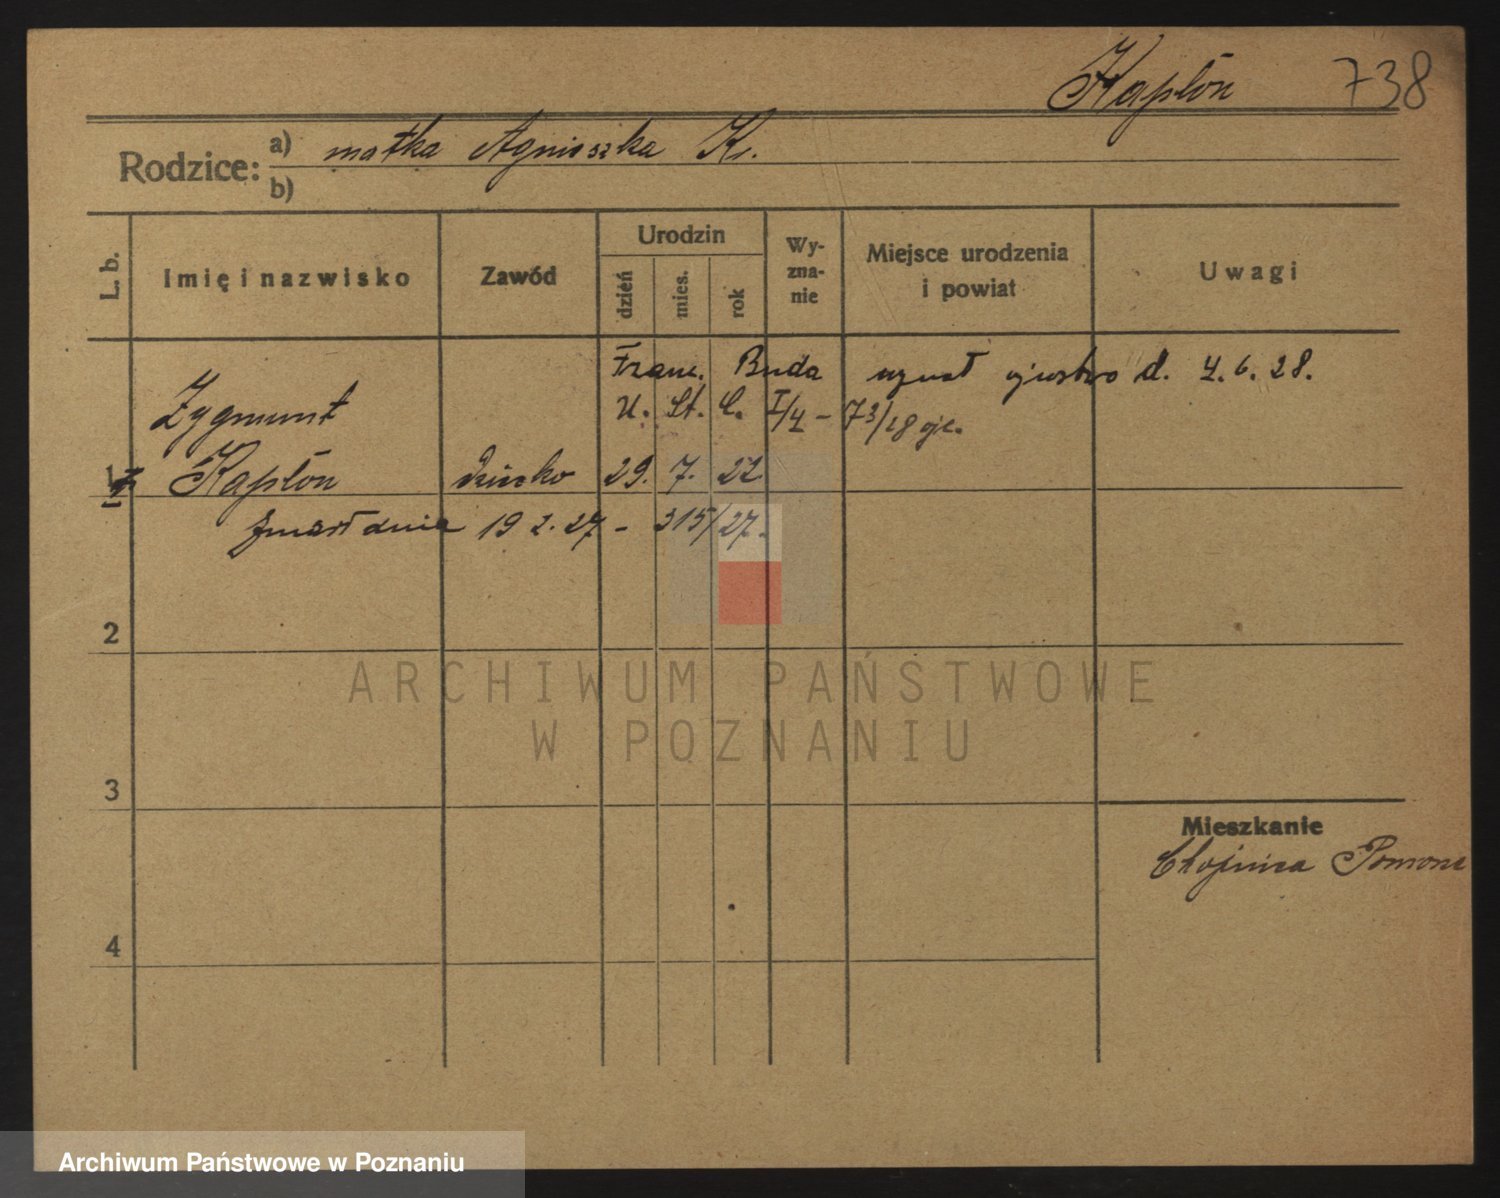 Kapłon 738
Rodzice: a) matka Agnieszka K.
b)
L. b. Imię i nazwisko Zawód Urodzin dzień mies. rok Wyzna-nie Miejsce urodzenia i powiat Uwagi
Franc. Buda uznał ojcostwo d. 4. 6. 28.
Zygmunt U. St. C. I/4 - 73/28 ojc.
1 Kapłon dziecko 29. 7. 22
Zmarł dnia 19 2. 27 - 315/27.
2
ARCHIWUM PAŃSTWOWE
W POZNANIU
3
Mieszkanie
Chojnica Pomorze
4
Archiwum Państwowe w Poznaniu